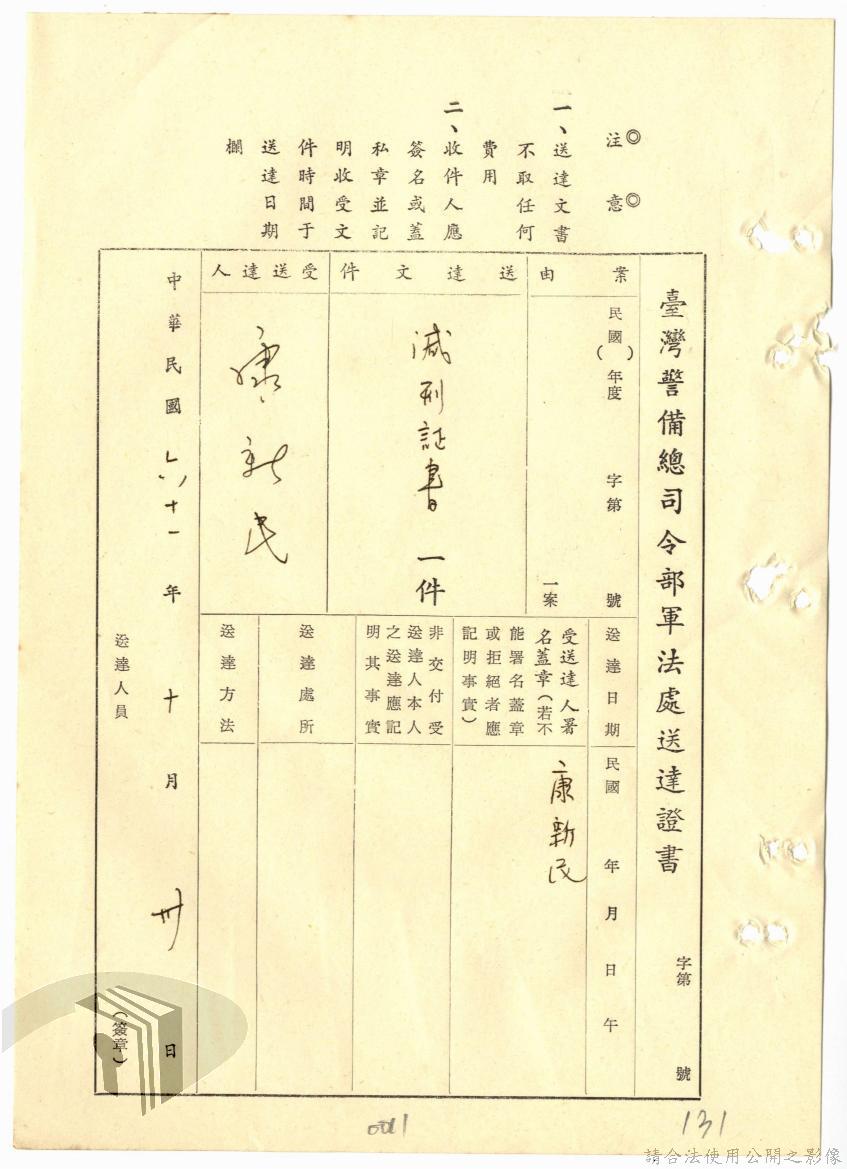 臺灣警備總司令部軍法處送達證書
字第　號
◎注意◎
一、送達文書
不取任何
費用
二、收件人應
簽名或蓋
私章並記
明收受文
件時間于
送達日期
欄
案由
民國（　）年度　字第　號
一案
送達文件
減刑証書一件
受送達人
康新民
送達日期
民國　年　月　日　午
受送達人署
名蓋章（若不
能署名蓋章
或拒絕者應
記明事實）
康新民
非交付受
送達人本人
之送達應記
明其事實
送達處所
送達方法
中華民國六十一年十月卅日
送達人員
（簽章）
131
請合法使用公開之影像